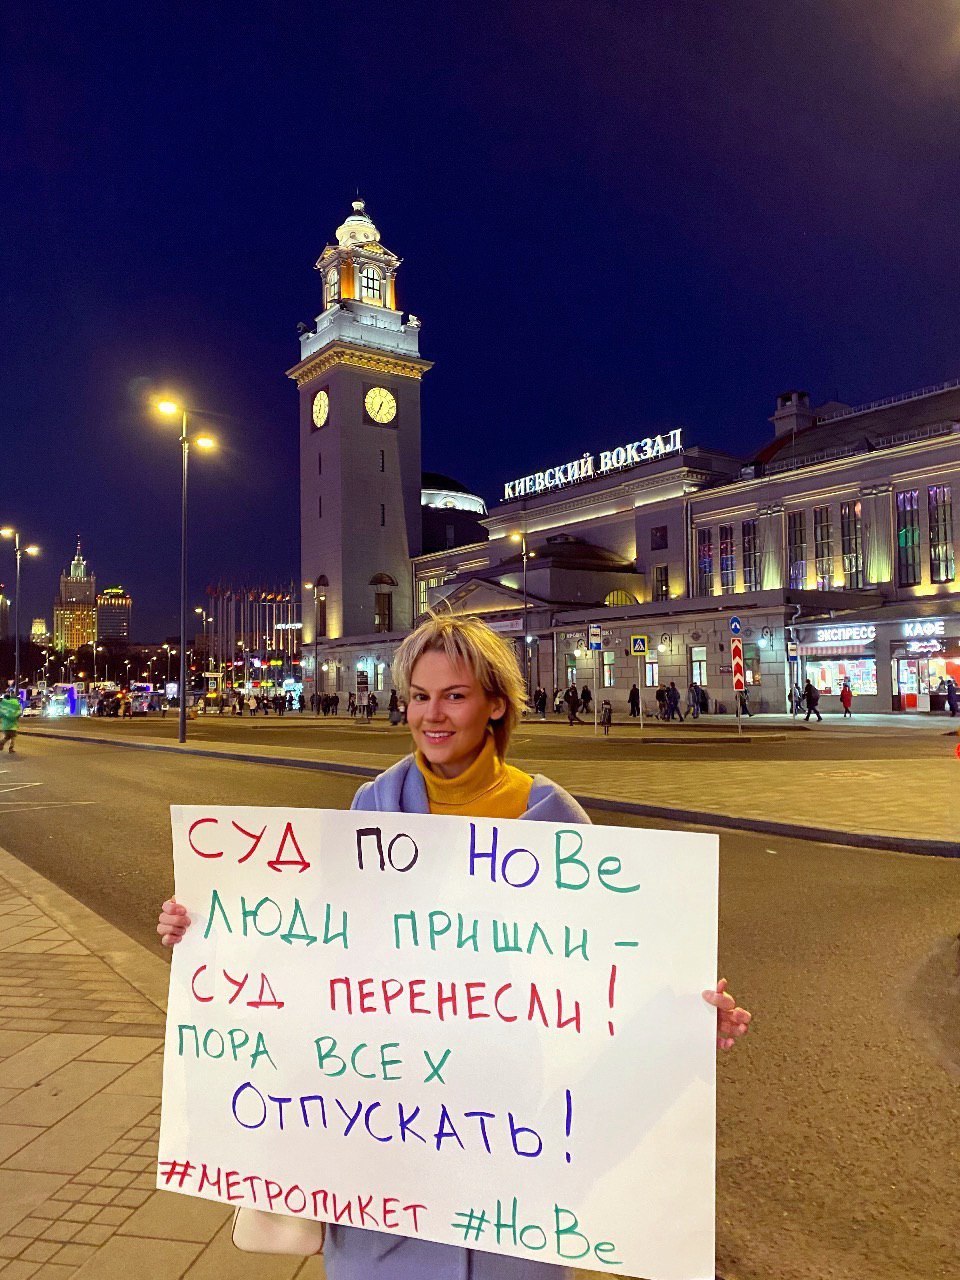 КИЕВСКИЙ ВОКЗАЛ
ЭКСПРЕСС КАФЕ
СУД ПО НоВе
ЛЮДИ ПРИШЛИ -
СУД ПЕРЕНЕСЛИ!
ПОРА ВСЕХ
ОТПУСКАТЬ!
#МЕТРОПИКЕТ #НоВе